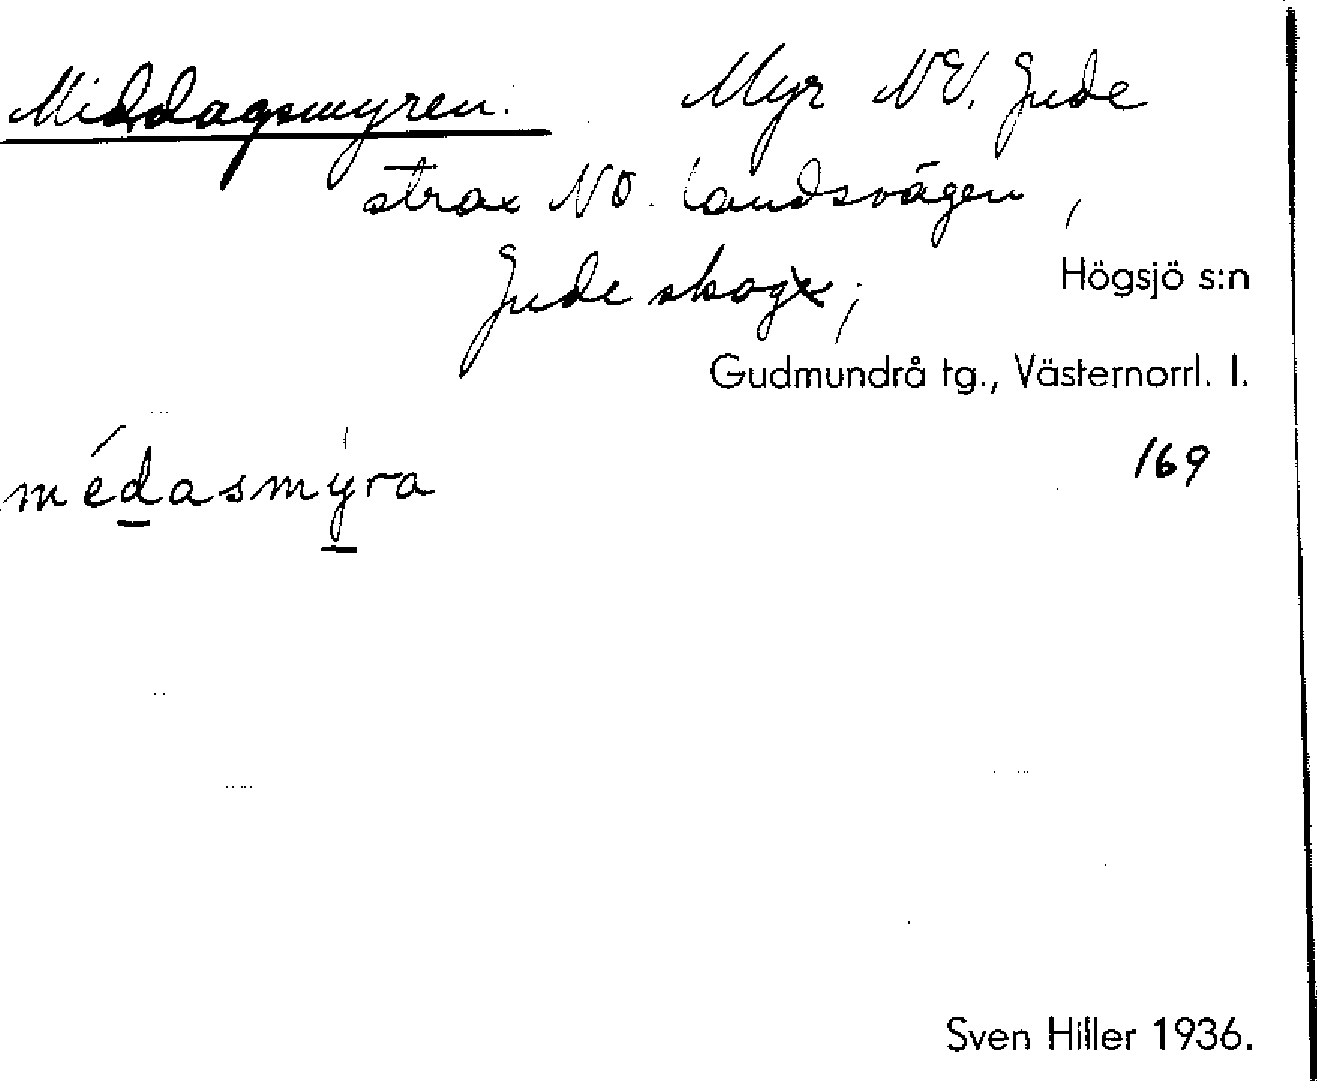 Middagsmyren. Myr NV. Jude
strax NO. landsvägen,
Jude skog;
Högsjö s:n
Gudmundrå tg., Västernorrl. l.
169
médasmýra
Sven Hiller 1936.